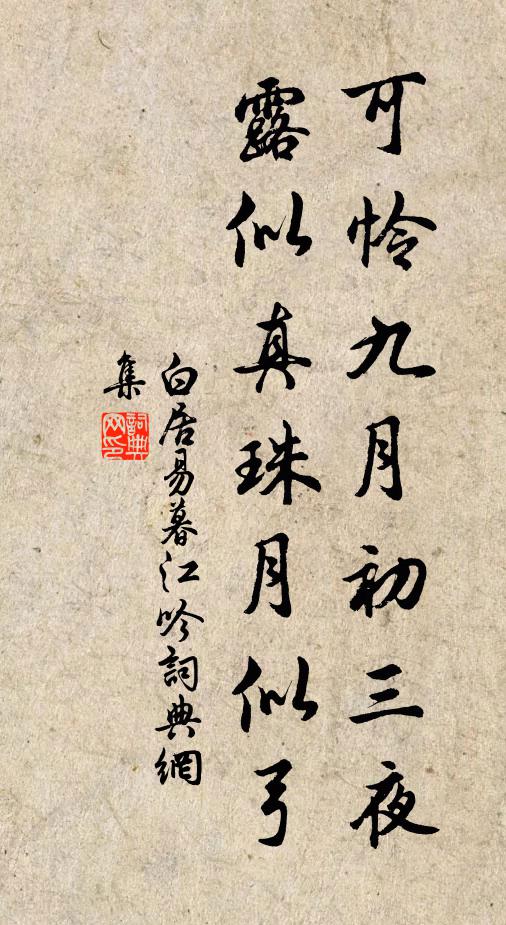 可怜九月初三夜
露似真珠月似弓
白居易暮江吟詞典網
集
詞典
网印